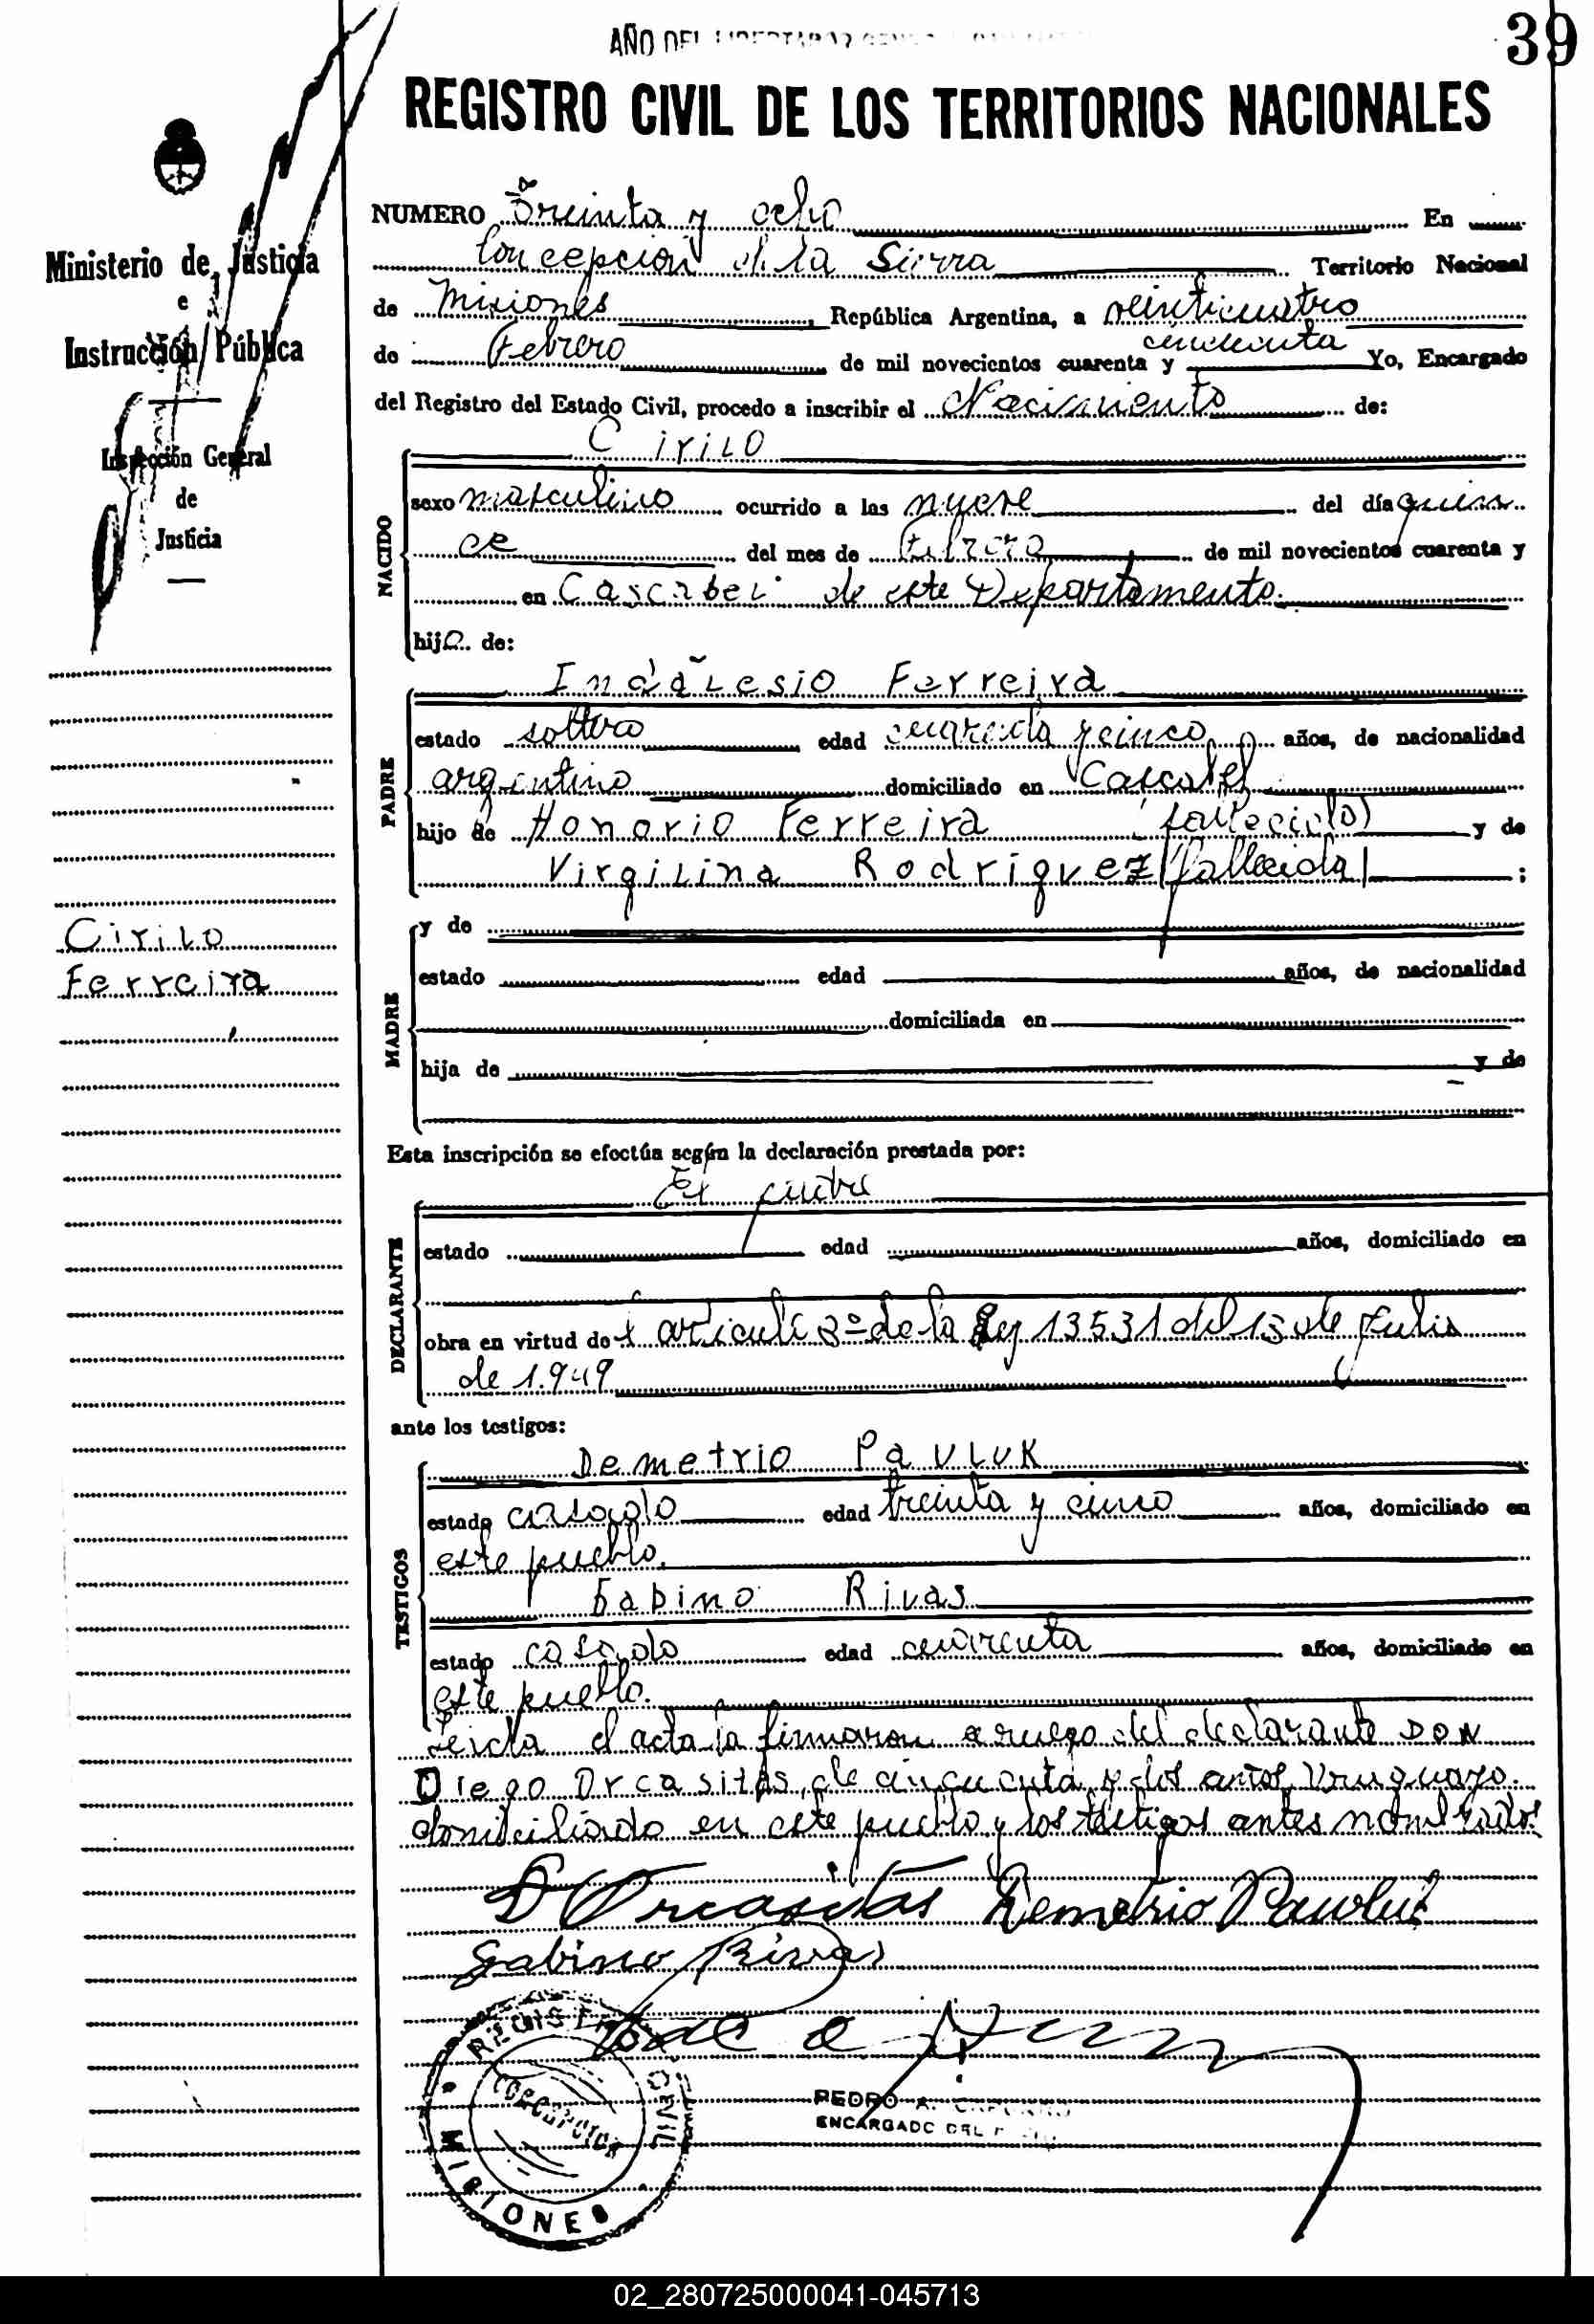 AÑO DEL LIBERTADOR
39
REGISTRO CIVIL DE LOS TERRITORIOS NACIONALES
Ministerio de Justicia
e
Instrucción Pública
Inspección General
de
Justicia
Cirilo
Ferreira
NUMERO Treinta y ocho En
Concepción de la Sierra Territorio Nacional
de Misiones, República Argentina, a veinticuatro
de Febrero de mil novecientos cuarenta y cincuenta Yo, Encargado
del Registro del Estado Civil, procedo a inscribir el Nacimiento de:
NACIDO
Cirilo
sexo masculino ocurrido a las nueve del día quin
ce del mes de Febrero de mil novecientos cuarenta y
en Cascabel de este Departamento.
hijo de:
PADRE
Indalesio Ferreira
estado soltero edad cuarenta y cinco años, de nacionalidad
argentino domiciliado en Cascabel
hijo de Honorio Ferreira (fallecido) y de
Virgilina Rodriguez (fallecida) ;
MADRE
y de
estado edad años, de nacionalidad
domiciliada en
hija de y de
Esta inscripción se efectúa según la declaración prestada por:
DECLARANTE
El padre
estado edad años, domiciliado en
obra en virtud del articulo 3º de la Ley 13531 del 13 de Julio
de 1.949
ante los testigos:
TESTIGOS
Demetrio Pavluk
estado casado edad treinta y cinco años, domiciliado en
este pueblo.
Gabino Rivas
estado casado edad cuarenta años, domiciliado en
este pueblo.
Leida el acta la firmaron a ruego del declarante Don
Diego Orcasitas, de cincuenta y dos años, Uruguayo
domiciliado en este pueblo y los testigos antes nombrados.
D Orcasitas Demetrio Pawluk
Gabino Rivas
REGISTRO CIVIL
CONCEPCION
MISIONES
PEDRO A.
ENCARGADO DEL
02_280725000041-045713